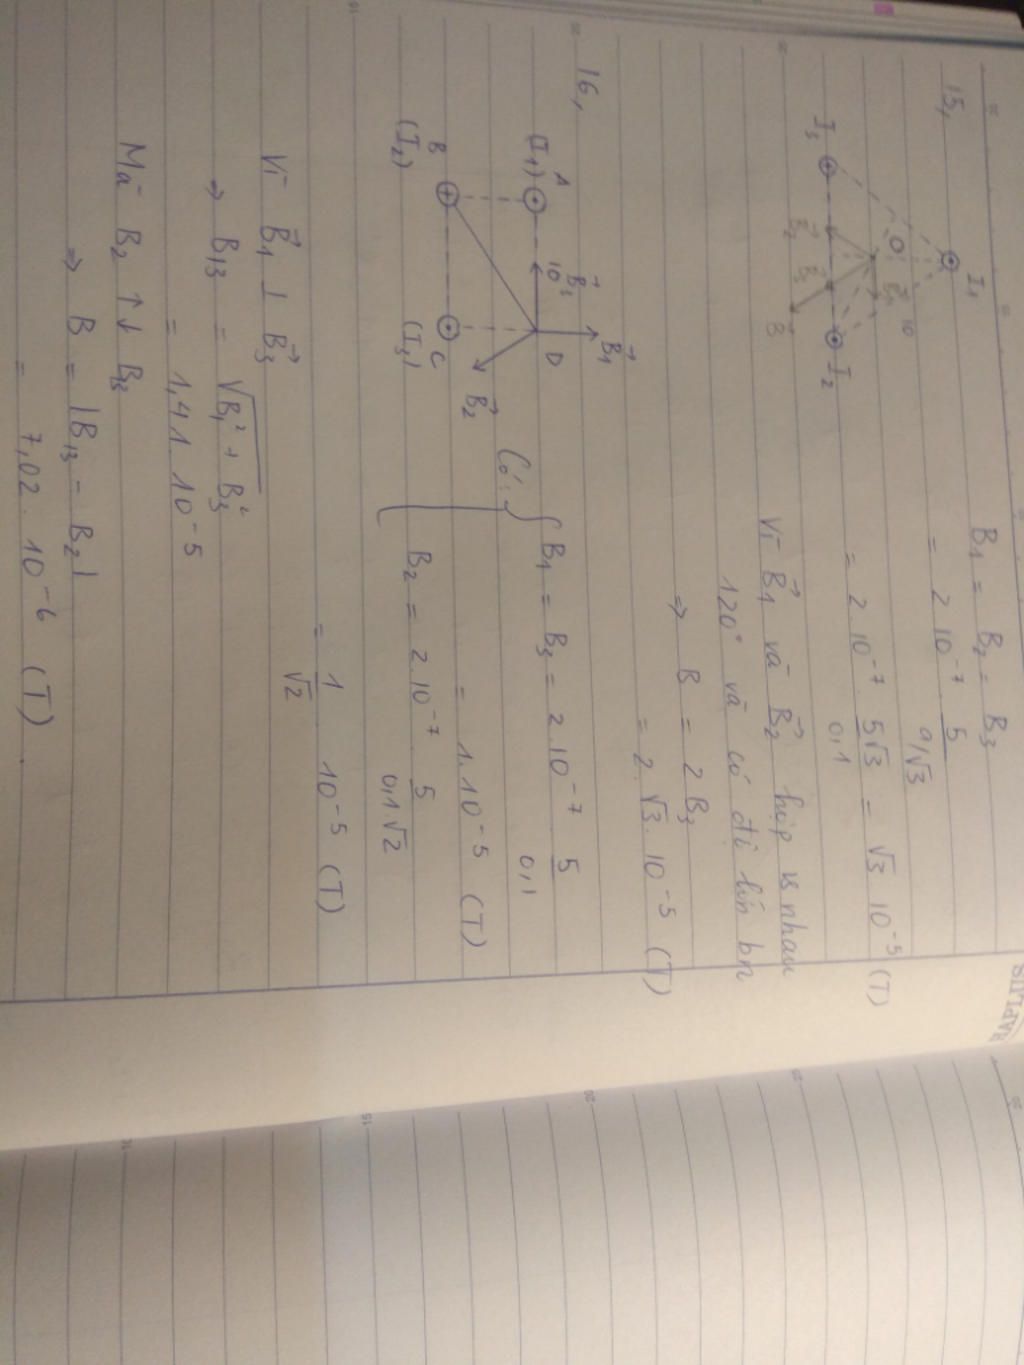 HAPLUS
15,
I₁
O
I₃
I₂
B₁ = B₂ = B₃
= 2 10⁻⁷ 5 / a/√3
= 2 10⁻⁷ . 5√3 / 0,1 = √3 10⁻⁵ (T)
Vì B₁→ và B₂→ hợp vs nhau
120° và có độ lớn bn
⇒ B = 2 B₃
= 2 √3 . 10⁻⁵ (T)
16,
A
(I₁)
10
B₃→
D
B₁→
B₂→
B
(I₂)
C
(I₃)
Có: { B₁ = B₃ = 2 . 10⁻⁷ 5 / 0,1
= 1.10⁻⁵ (T)
B₂ = 2 . 10⁻⁷ 5 / 0,1.√2
= 1/√2 10⁻⁵ (T)
Vì B₁→ ⊥ B₃→
⇒ B₁₃ = √B₁² + B₃²
= 1,41 . 10⁻⁵
Mà B₂ ↑↓ B₁₃
⇒ B = |B₁₃ - B₂|
= 7,02 . 10⁻⁶ (T)